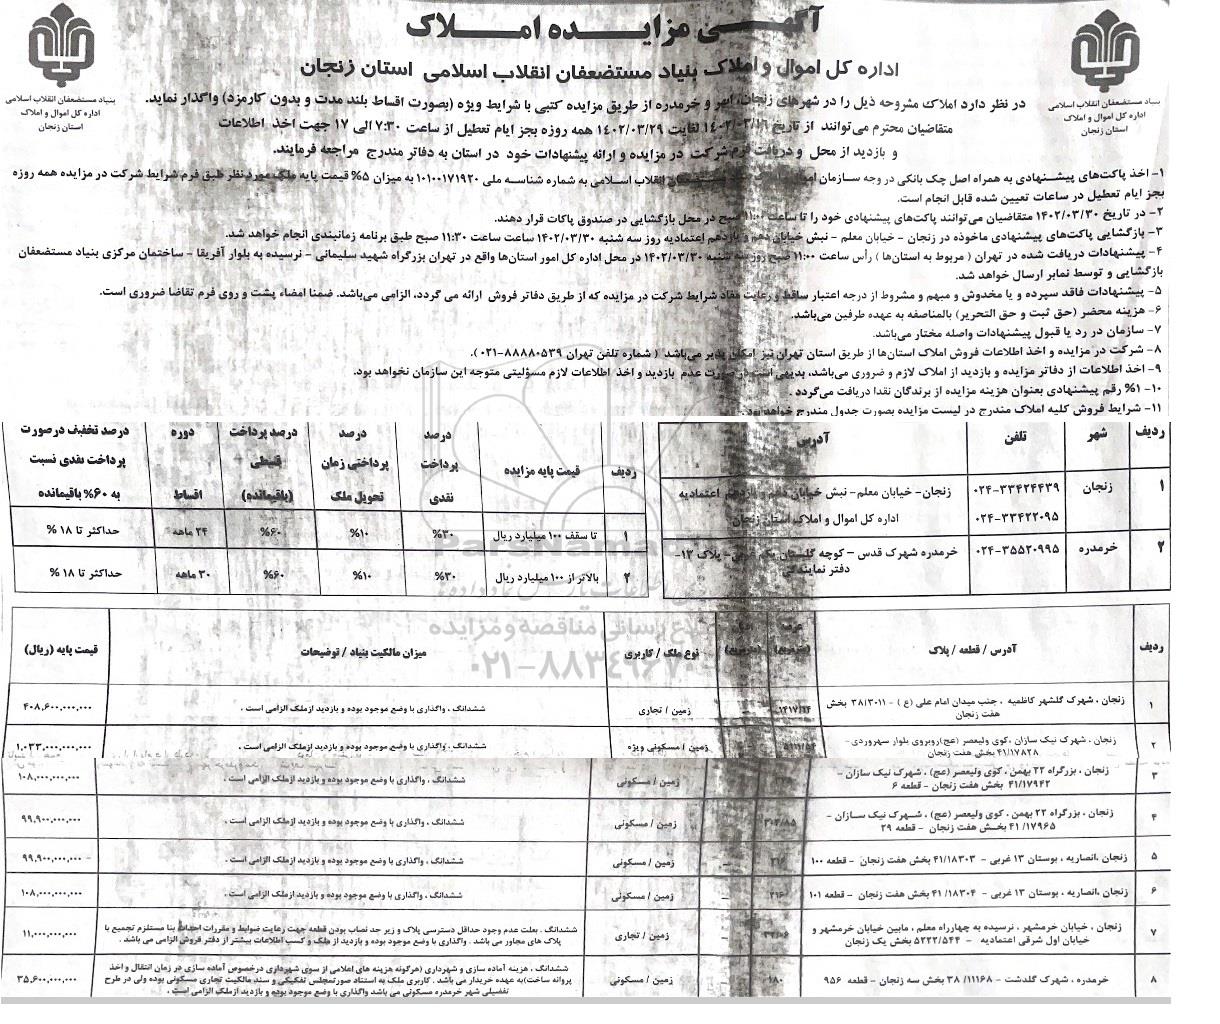 آگهـی مزایـــده امـــلاک
اداره کل اموال و املاک بنیاد مستضعفان انقلاب اسلامی استان زنجان
بنیاد مستضعفان انقلاب اسلامی
اداره کل اموال و املاک
استان زنجان
بنیاد مستضعفان انقلاب اسلامی
اداره کل اموال و املاک
استان زنجان
در نظر دارد املاک مشروحه ذیل را در شهرهای زنجان، ابهر و خرمدره از طریق مزایده کتبی با شرایط ویژه (بصورت اقساط بلند مدت و بدون کارمزد) واگذار نماید.
متقاضیان محترم می‌توانند از تاریخ ۱۴۰۲/۰۳/۱۶ لغایت ۱۴۰۲/۰۳/۲۹ همه روزه بجز ایام تعطیل از ساعت ۷:۳۰ الی ۱۷ جهت اخذ اطلاعات
و بازدید از محل و دریافت فرم شرکت در مزایده و ارائه پیشنهادات خود در استان به دفاتر مندرج مراجعه فرمایند.
۱- اخذ پاکت‌های پیشنهادی به همراه اصل چک بانکی در وجه سازمان اموال انقلاب اسلامی به شماره شناسه ملی ۱۰۱۰۰۱۷۱۹۲۰ به میزان ۵% قیمت پایه ملک مورد نظر طبق فرم شرایط شرکت در مزایده همه روزه
بجز ایام تعطیل در ساعات تعیین شده قابل انجام است.
۲- در تاریخ ۱۴۰۲/۰۳/۳۰ متقاضیان می‌توانند پاکت‌های پیشنهادی خود را تا ساعت ۱۱:۰۰ صبح در محل بازگشایی در صندوق پاکات قرار دهند.
۳- بازگشایی پاکت‌های پیشنهادی ماخوذه در زنجان - خیابان معلم - نبش خیابان دهم و یازدهم اعتمادیه روز سه شنبه ۱۴۰۲/۰۳/۳۰ ساعت ساعت ۱۱:۳۰ صبح طبق برنامه زمانبندی انجام خواهد شد.
۴- پیشنهادات دریافت شده در تهران ( مربوط به استان‌ها ) رأس ساعت ۱۱:۰۰ صبح روز سه شنبه ۱۴۰۲/۰۳/۳۰ در محل اداره کل امور استان‌ها واقع در تهران بزرگراه شهید سلیمانی - نرسیده به بلوار آفریقا - ساختمان مرکزی بنیاد مستضعفان
بازگشایی و توسط نمابر ارسال خواهد شد.
۵- پیشنهادات فاقد سپرده و یا مخدوش و مبهم و مشروط از درجه اعتبار ساقط و رعایت مفاد شرایط شرکت در مزایده که از طریق دفاتر فروش ارائه می گردد، الزامی می‌باشد. ضمنا امضاء پشت و روی فرم تقاضا ضروری است.
۶- هزینه محضر (حق ثبت و حق التحریر) بالمناصفه به عهده طرفین می‌باشد.
۷- سازمان در رد یا قبول پیشنهادات واصله مختار می‌باشد.
۸- شرکت در مزایده و اخذ اطلاعات فروش املاک استان‌ها از طریق استان تهران نیز امکان پذیر می‌باشد ( شماره تلفن تهران ۸۸۸۸۰۵۳۹-۰۲۱).
۹- اخذ اطلاعات از دفاتر مزایده و بازدید از املاک لازم و ضروری می‌باشد، بدیهی است در صورت عدم بازدید و اخذ اطلاعات لازم مسؤلیتی متوجه این سازمان نخواهد بود.
۱۰- ۱% رقم پیشنهادی بعنوان هزینه مزایده از برندگان نقدا دریافت می‌گردد .
۱۱- شرایط فروش کلیه املاک مندرج در لیست مزایده بصورت جدول مندرج خواهد بود.
ردیف شهر تلفن آدرس
۱ زنجان ۳۳۴۲۴۴۳۹-۰۲۴ زنجان- خیابان معلم- نبش خیابان دهم و یازدهم اعتمادیه
۳۳۴۲۲۰۹۵-۰۲۴ اداره کل اموال و املاک استان زنجان
۲ خرمدره ۳۵۵۲۰۹۹۵-۰۲۴ خرمدره شهرک قدس - کوچه گلستان یک غربی- پلاک ۱۳-
دفتر نمایندگی
ردیف قیمت پایه مزایده درصد پرداخت نقدی درصد پرداختی زمان تحویل ملک درصد پرداخت قسطی (باقیمانده) دوره اقساط درصد تخفیف درصورت پرداخت نقدی نسبت به ۶۰% باقیمانده
۱ تا سقف ۱۰۰ میلیارد ریال ۳۰% ۱۰% ۶۰% ۲۴ ماهه حداکثر تا ۱۸ %
۲ بالاتر از ۱۰۰ میلیارد ریال ۳۰% ۱۰% ۶۰% ۳۰ ماهه حداکثر تا ۱۸ %
ParsNamad
۰۲۱-۸۸۳۴۹۶۷۰
ردیف آدرس / قطعه / پلاک نوع ملک / کاربری میزان مالکیت بنیاد / توضیحات قیمت پایه (ریال)
۱ زنجان ، شهرک گلشهر کاظمیه ، جنب میدان امام علی (ع ) - ۳۸/۳۰۱۱ بخش هفت زنجان زمین / تجاری ششدانگ ، واگذاری با وضع موجود بوده و بازدید ازملک الزامی است . ۴۰۸,۶۰۰,۰۰۰,۰۰۰
۲ زنجان ، شهرک نیک سازان ،کوی ولیعصر (عج)روبروی بلوار سهروردی- ۴۱/۱۷۸۲۸ بخش هفت زنجان زمین / مسکونی ویژه ششدانگ ، واگذاری با وضع موجود بوده و بازدید ازملک الزامی است . ۱,۰۳۳,۰۰۰,۰۰۰,۰۰۰
۳ زنجان ، بزرگراه ۲۲ بهمن ، کوی ولیعصر (عج) ، شهرک نیک سازان - ۴۱/۱۷۹۴۲ بخش هفت زنجان - قطعه ۶ زمین / مسکونی ششدانگ ، واگذاری با وضع موجود بوده و بازدید ازملک الزامی است . ۱۰۸,۰۰۰,۰۰۰,۰۰۰
۴ زنجان ، بزرگراه ۲۲ بهمن ، کوی ولیعصر (عج) ، شهرک نیک سازان - ۴۱/۱۷۹۶۵ بخش هفت زنجان - قطعه ۲۹ زمین / مسکونی ششدانگ ، واگذاری با وضع موجود بوده و بازدید ازملک الزامی است . ۹۹,۹۰۰,۰۰۰,۰۰۰
۵ زنجان ،انصاریه ، بوستان ۱۳ غربی - ۴۱/۱۸۳۰۳ بخش هفت زنجان - قطعه ۱۰۰ زمین / مسکونی ششدانگ ، واگذاری با وضع موجود بوده و بازدید ازملک الزامی است . ۹۹,۹۰۰,۰۰۰,۰۰۰
۶ زنجان ،انصاریه ، بوستان ۱۳ غربی - ۴۱/۱۸۳۰۴ بخش هفت زنجان - قطعه ۱۰۱ زمین / مسکونی ششدانگ ، واگذاری با وضع موجود بوده و بازدید ازملک الزامی است . ۱۰۸,۰۰۰,۰۰۰,۰۰۰
۷ زنجان ، خیابان خرمشهر ، نرسیده به چهارراه معلم ، مابین خیابان خرمشهر و خیابان اول شرقی اعتمادیه - ۵۲۲۲/۵۴۴ بخش یک زنجان زمین / تجاری ششدانگ . بعلت عدم وجود حداقل دسترسی پلاک و زیر حد نصاب بودن قطعه جهت رعایت ضوابط و مقررات احداث بنا مستلزم تجمیع با پلاک های مجاور می باشد . واگذاری با وضع موجود بوده و بازدید از ملک و کسب اطلاعات بیشتر از دفتر فروش الزامی می باشد . ۱۱,۰۰۰,۰۰۰,۰۰۰
۸ خرمدره ، شهرک گلدشت - ۳۸/۱۱۱۶۸ بخش سه زنجان - قطعه ۹۵۶ ۱۸۰ زمین / مسکونی ششدانگ ، هزینه آماده سازی و شهرداری (هرگونه هزینه های اعلامی از سوی شهرداری درخصوص آماده سازی در زمان انتقال و اخذ پروانه ساخت)به عهده خریدار می باشد . کاربری ملک به استناد صورتمجلس تفکیکی و سند مالکیت تجاری مسکونی بوده ولی در طرح تفصیلی شهر خرمدره مسکونی می باشد واگذاری با وضع موجود بوده و بازدید ازملک الزامی است . ۳۵,۶۰۰,۰۰۰,۰۰۰